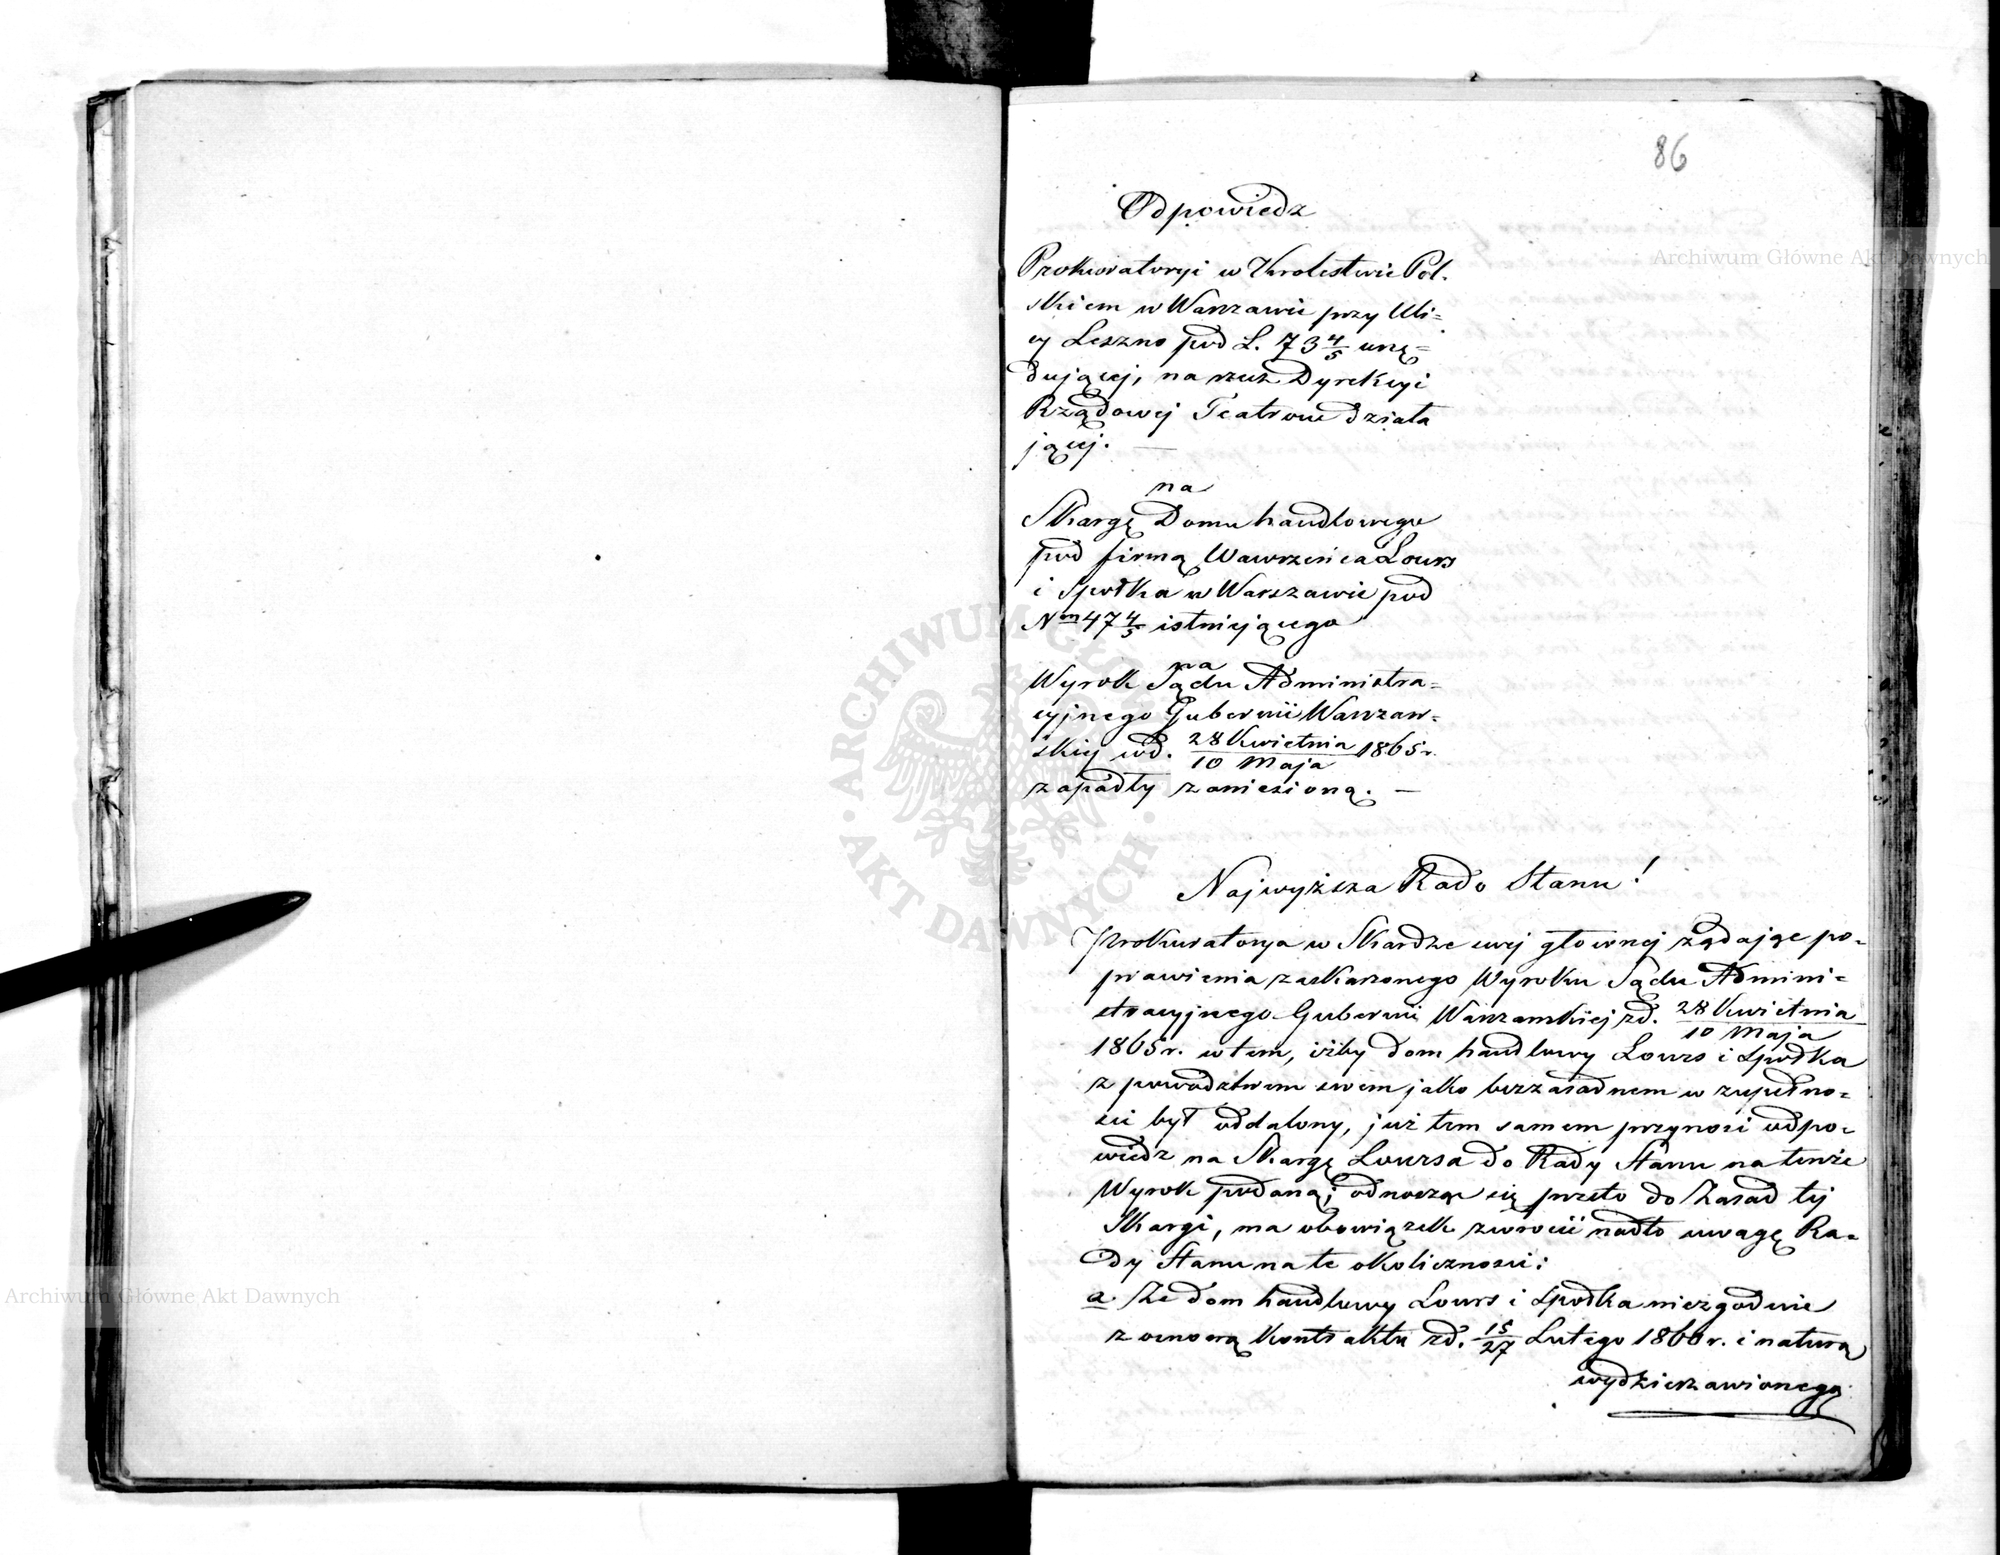 86
Odpowiedz
Prokuratoryi w Krolestwie Pol-
skiem w Warszawie przy Uli=
cy Leszno pod L. 73 4/5 urzę=
dującej, na rzecz Dyrekcyi
Rządowej Teatrow działa
jącej. —
na
Skargę Domu handlowego
pod firmą Wawrzeńca Lours
i Społka w Warszawie pod
Nm 47 4/5 istniejącego
na
Wyrok Sądu Administra=
cyjnego Gubernii Warszaw=
skiej w d. 28 Kwietnia/10 Maja 1865 r.
zapadły zaniesioną. —
Najwyższa Rado Stanu!
Prokuratorya w Skardze swej głownej żądając po=
prawienia zaskarżonego Wyroku Sądu Admini=
stracyjnego Gubernii Warszawskiej z d. 28 Kwietnia/10 Maja
1865 r. w tem, iżby dom handlowy Lours i Społka
z powodztwem swem jako bezzasadnem w zupełno=
ści był oddalony, już tem samem przynosi odpo=
wiedz na Skargę Loursa do Rady Stanu na tenże
Wyrok podaną; odnosząc się przeto do Zasad tej
Skargi, ma obowiązek zwrocić nadto uwagę Ra=
dy Stanu na te okoliczności:
a. Że dom handlowy Lours i Społka niezgodnie
z osnową Kontraktu z d. 15/27 Lutego 1860 r. i naturą
wydzierzawionego
Archiwum Główne Akt Dawnych
Archiwum Główne Akt Dawnych
ARCHIWUM GŁÓWNE · AKT DAWNYCH ·